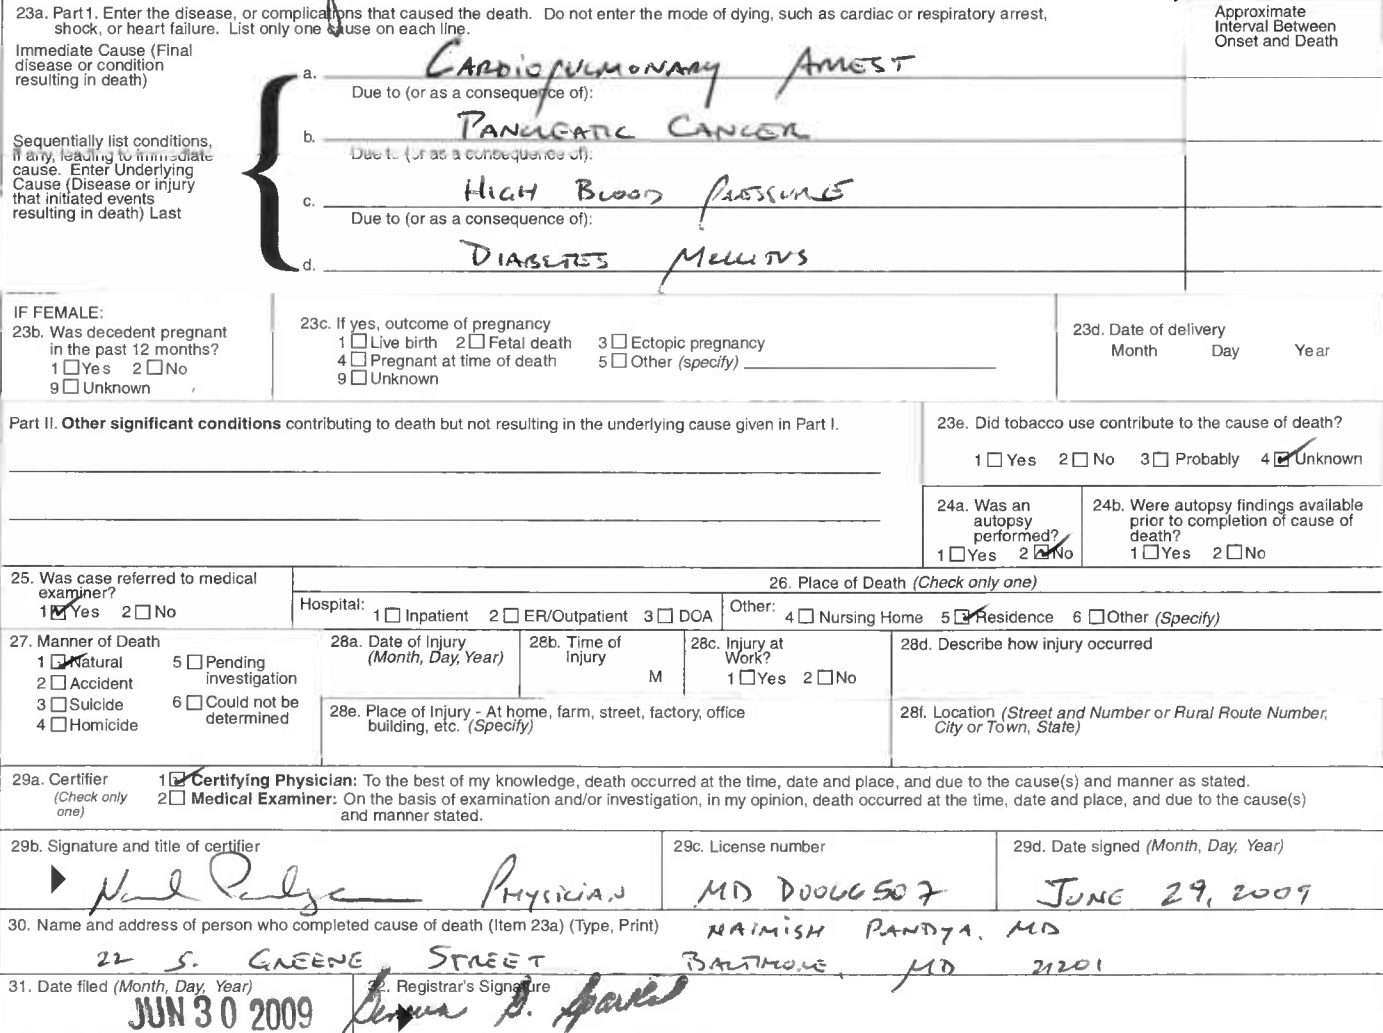 23a. Part1. Enter the disease, or complications that caused the death. Do not enter the mode of dying, such as cardiac or respiratory arrest,
shock, or heart failure. List only one cause on each line.
Approximate
Interval Between
Onset and Death
Immediate Cause (Final
disease or condition
resulting in death)
a. CARDIOPULMONARY ARREST
Due to (or as a consequence of):
Sequentially list conditions,
if any, leading to immediate
cause. Enter Underlying
Cause (Disease or injury
that initiated events
resulting in death) Last
b. PANCREATIC CANCER
Due to (or as a consequence of):
c. HIGH BLOOD PRESSURE
Due to (or as a consequence of):
d. DIABETES MELLITUS
IF FEMALE:
23b. Was decedent pregnant
in the past 12 months?
1 ☐ Yes 2 ☐ No
9 ☐ Unknown
23c. If yes, outcome of pregnancy
1 ☐ Live birth 2 ☐ Fetal death 3 ☐ Ectopic pregnancy
4 ☐ Pregnant at time of death 5 ☐ Other (specify)
9 ☐ Unknown
23d. Date of delivery
Month Day Year
Part II. Other significant conditions contributing to death but not resulting in the underlying cause given in Part I.
23e. Did tobacco use contribute to the cause of death?
1 ☐ Yes 2 ☐ No 3 ☐ Probably 4 ☑ Unknown
24a. Was an
autopsy
performed?
1 ☐ Yes 2 ☑ No
24b. Were autopsy findings available
prior to completion of cause of
death?
1 ☐ Yes 2 ☐ No
25. Was case referred to medical
examiner?
1 ☑ Yes 2 ☐ No
26. Place of Death (Check only one)
Hospital: 1 ☐ Inpatient 2 ☐ ER/Outpatient 3 ☐ DOA Other: 4 ☐ Nursing Home 5 ☑ Residence 6 ☐ Other (Specify)
27. Manner of Death
1 ☑ Natural 5 ☐ Pending
investigation
2 ☐ Accident
3 ☐ Suicide 6 ☐ Could not be
determined
4 ☐ Homicide
28a. Date of Injury
(Month, Day, Year)
28b. Time of
Injury
M
28c. Injury at
Work?
1 ☐ Yes 2 ☐ No
28d. Describe how injury occurred
28e. Place of Injury - At home, farm, street, factory, office
building, etc. (Specify)
28f. Location (Street and Number or Rural Route Number,
City or Town, State)
29a. Certifier
(Check only
one)
1 ☑ Certifying Physician: To the best of my knowledge, death occurred at the time, date and place, and due to the cause(s) and manner as stated.
2 ☐ Medical Examiner: On the basis of examination and/or investigation, in my opinion, death occurred at the time, date and place, and due to the cause(s)
and manner stated.
29b. Signature and title of certifier
PHYSICIAN
29c. License number
MD D0066507
29d. Date signed (Month, Day, Year)
JUNE 29, 2009
30. Name and address of person who completed cause of death (Item 23a) (Type, Print) NAIMISH PANDYA, MD
22 S. GREENE STREET BALTIMORE, MD 21201
31. Date filed (Month, Day, Year)
JUN 30 2009
32. Registrar's Signature